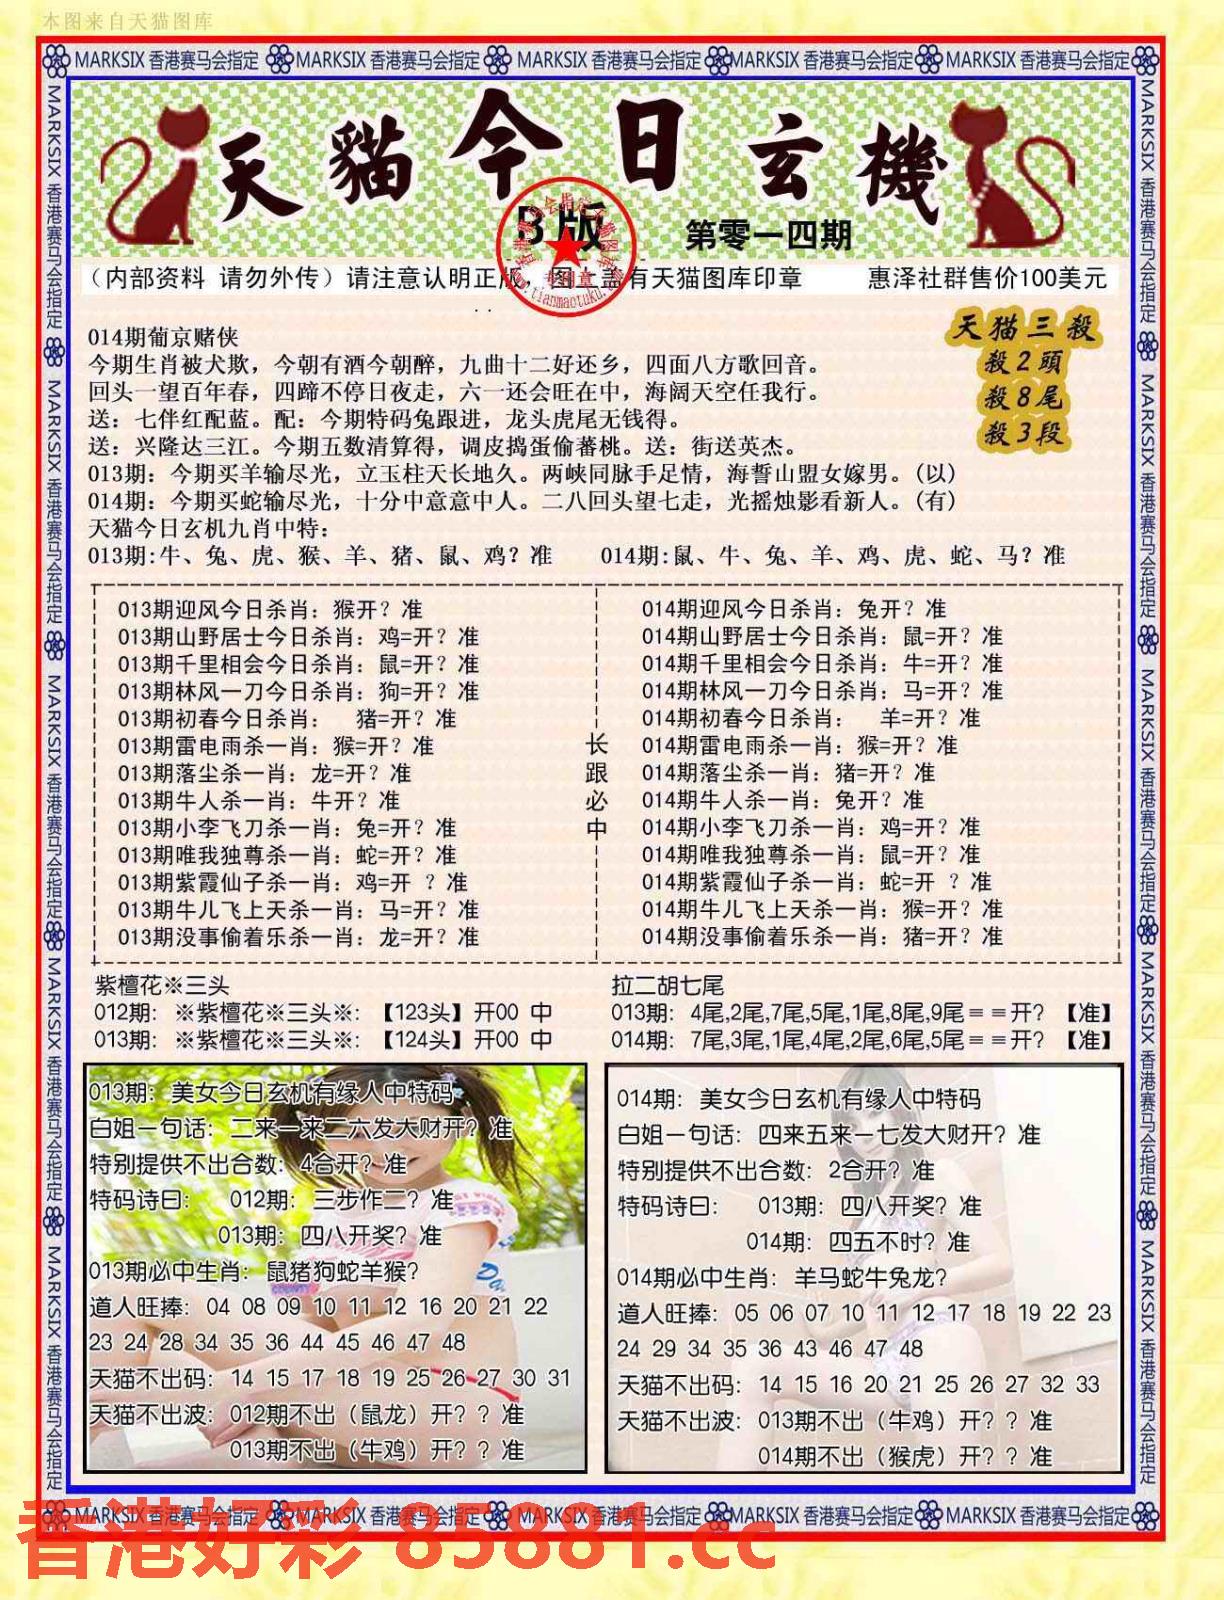 本图来自天猫图库
MARKSIX 香港赛马会指定 MARKSIX 香港赛马会指定 MARKSIX 香港赛马会指定 MARKSIX 香港赛马会指定 MARKSIX 香港赛马会指定
天貓今日玄機
B版
第零一四期
（内部资料 请勿外传）请注意认明正版，图上盖有天猫图库印章 惠泽社群售价100美元
天猫三殺
殺2頭
殺8尾
殺3段
014期葡京赌侠
今期生肖被犬欺，今朝有酒今朝醉，九曲十二好还乡，四面八方歌回音。
回头一望百年春，四蹄不停日夜走，六一还会旺在中，海阔天空任我行。
送：七伴红配蓝。配：今期特码兔跟进，龙头虎尾无钱得。
送：兴隆达三江。今期五数清算得，调皮捣蛋偷蕃桃。送：街送英杰。
013期：今期买羊输尽光，立玉柱天长地久。两峡同脉手足情，海誓山盟女嫁男。（以）
014期：今期买蛇输尽光，十分中意意中人。二八回头望七走，光摇烛影看新人。（有）
天猫今日玄机九肖中特：
013期:牛、兔、虎、猴、羊、猪、鼠、鸡？准 014期:鼠、牛、兔、羊、鸡、虎、蛇、马？准
013期迎风今日杀肖：猴开？准
013期山野居士今日杀肖：鸡=开？准
013期千里相会今日杀肖：鼠=开？准
013期林风一刀今日杀肖：狗=开？准
013期初春今日杀肖： 猪=开？准
013期雷电雨杀一肖：猴=开？准
013期落尘杀一肖：龙=开？准
013期牛人杀一肖：牛开？准
013期小李飞刀杀一肖：兔=开？准
013期唯我独尊杀一肖：蛇=开？准
013期紫霞仙子杀一肖：鸡=开 ？准
013期牛儿飞上天杀一肖：马=开？准
013期没事偷着乐杀一肖：龙=开？准
长跟必中
014期迎风今日杀肖：兔开？准
014期山野居士今日杀肖：鼠=开？准
014期千里相会今日杀肖：牛=开？准
014期林风一刀今日杀肖：马=开？准
014期初春今日杀肖： 羊=开？准
014期雷电雨杀一肖：猴=开？准
014期落尘杀一肖：猪=开？准
014期牛人杀一肖：兔开？准
014期小李飞刀杀一肖：鸡=开？准
014期唯我独尊杀一肖：鼠=开？准
014期紫霞仙子杀一肖：蛇=开 ？准
014期牛儿飞上天杀一肖：猴=开？准
014期没事偷着乐杀一肖：猪=开？准
紫檀花※三头
012期：※紫檀花※三头※：【123头】开00 中
013期：※紫檀花※三头※：【124头】开00 中
拉二胡七尾
013期：4尾,2尾,7尾,5尾,1尾,8尾,9尾＝＝开？【准】
014期：7尾,3尾,1尾,4尾,2尾,6尾,5尾＝＝开？【准】
013期：美女今日玄机有缘人中特码
白姐一句话：二来一来二六发大财开？准
特别提供不出合数：4合开？准
特码诗曰： 012期：三步作二？准
013期：四八开奖？准
013期必中生肖：鼠猪狗蛇羊猴？
道人旺捧：04 08 09 10 11 12 16 20 21 22
23 24 28 34 35 36 44 45 46 47 48
天猫不出码：14 15 17 18 19 25 26 27 30 31
天猫不出波：012期不出（鼠龙）开？？准
013期不出（牛鸡）开？？准
014期：美女今日玄机有缘人中特码
白姐一句话：四来五来一七发大财开？准
特别提供不出合数：2合开？准
特码诗曰： 013期：四八开奖？准
014期：四五不时？准
014期必中生肖：羊马蛇牛兔龙？
道人旺捧：05 06 07 10 11 12 17 18 19 22 23
24 29 34 35 36 43 46 47 48
天猫不出码：14 15 16 20 21 25 26 27 32 33
天猫不出波：013期不出（牛鸡）开？？准
014期不出（猴虎）开？？准
MARKSIX 香港赛马会指定 MARKSIX 香港赛马会指定 MARKSIX 香港赛马会指定 MARKSIX 香港赛马会指定 MARKSIX 香港赛马会指定
香港好彩 85881.cc